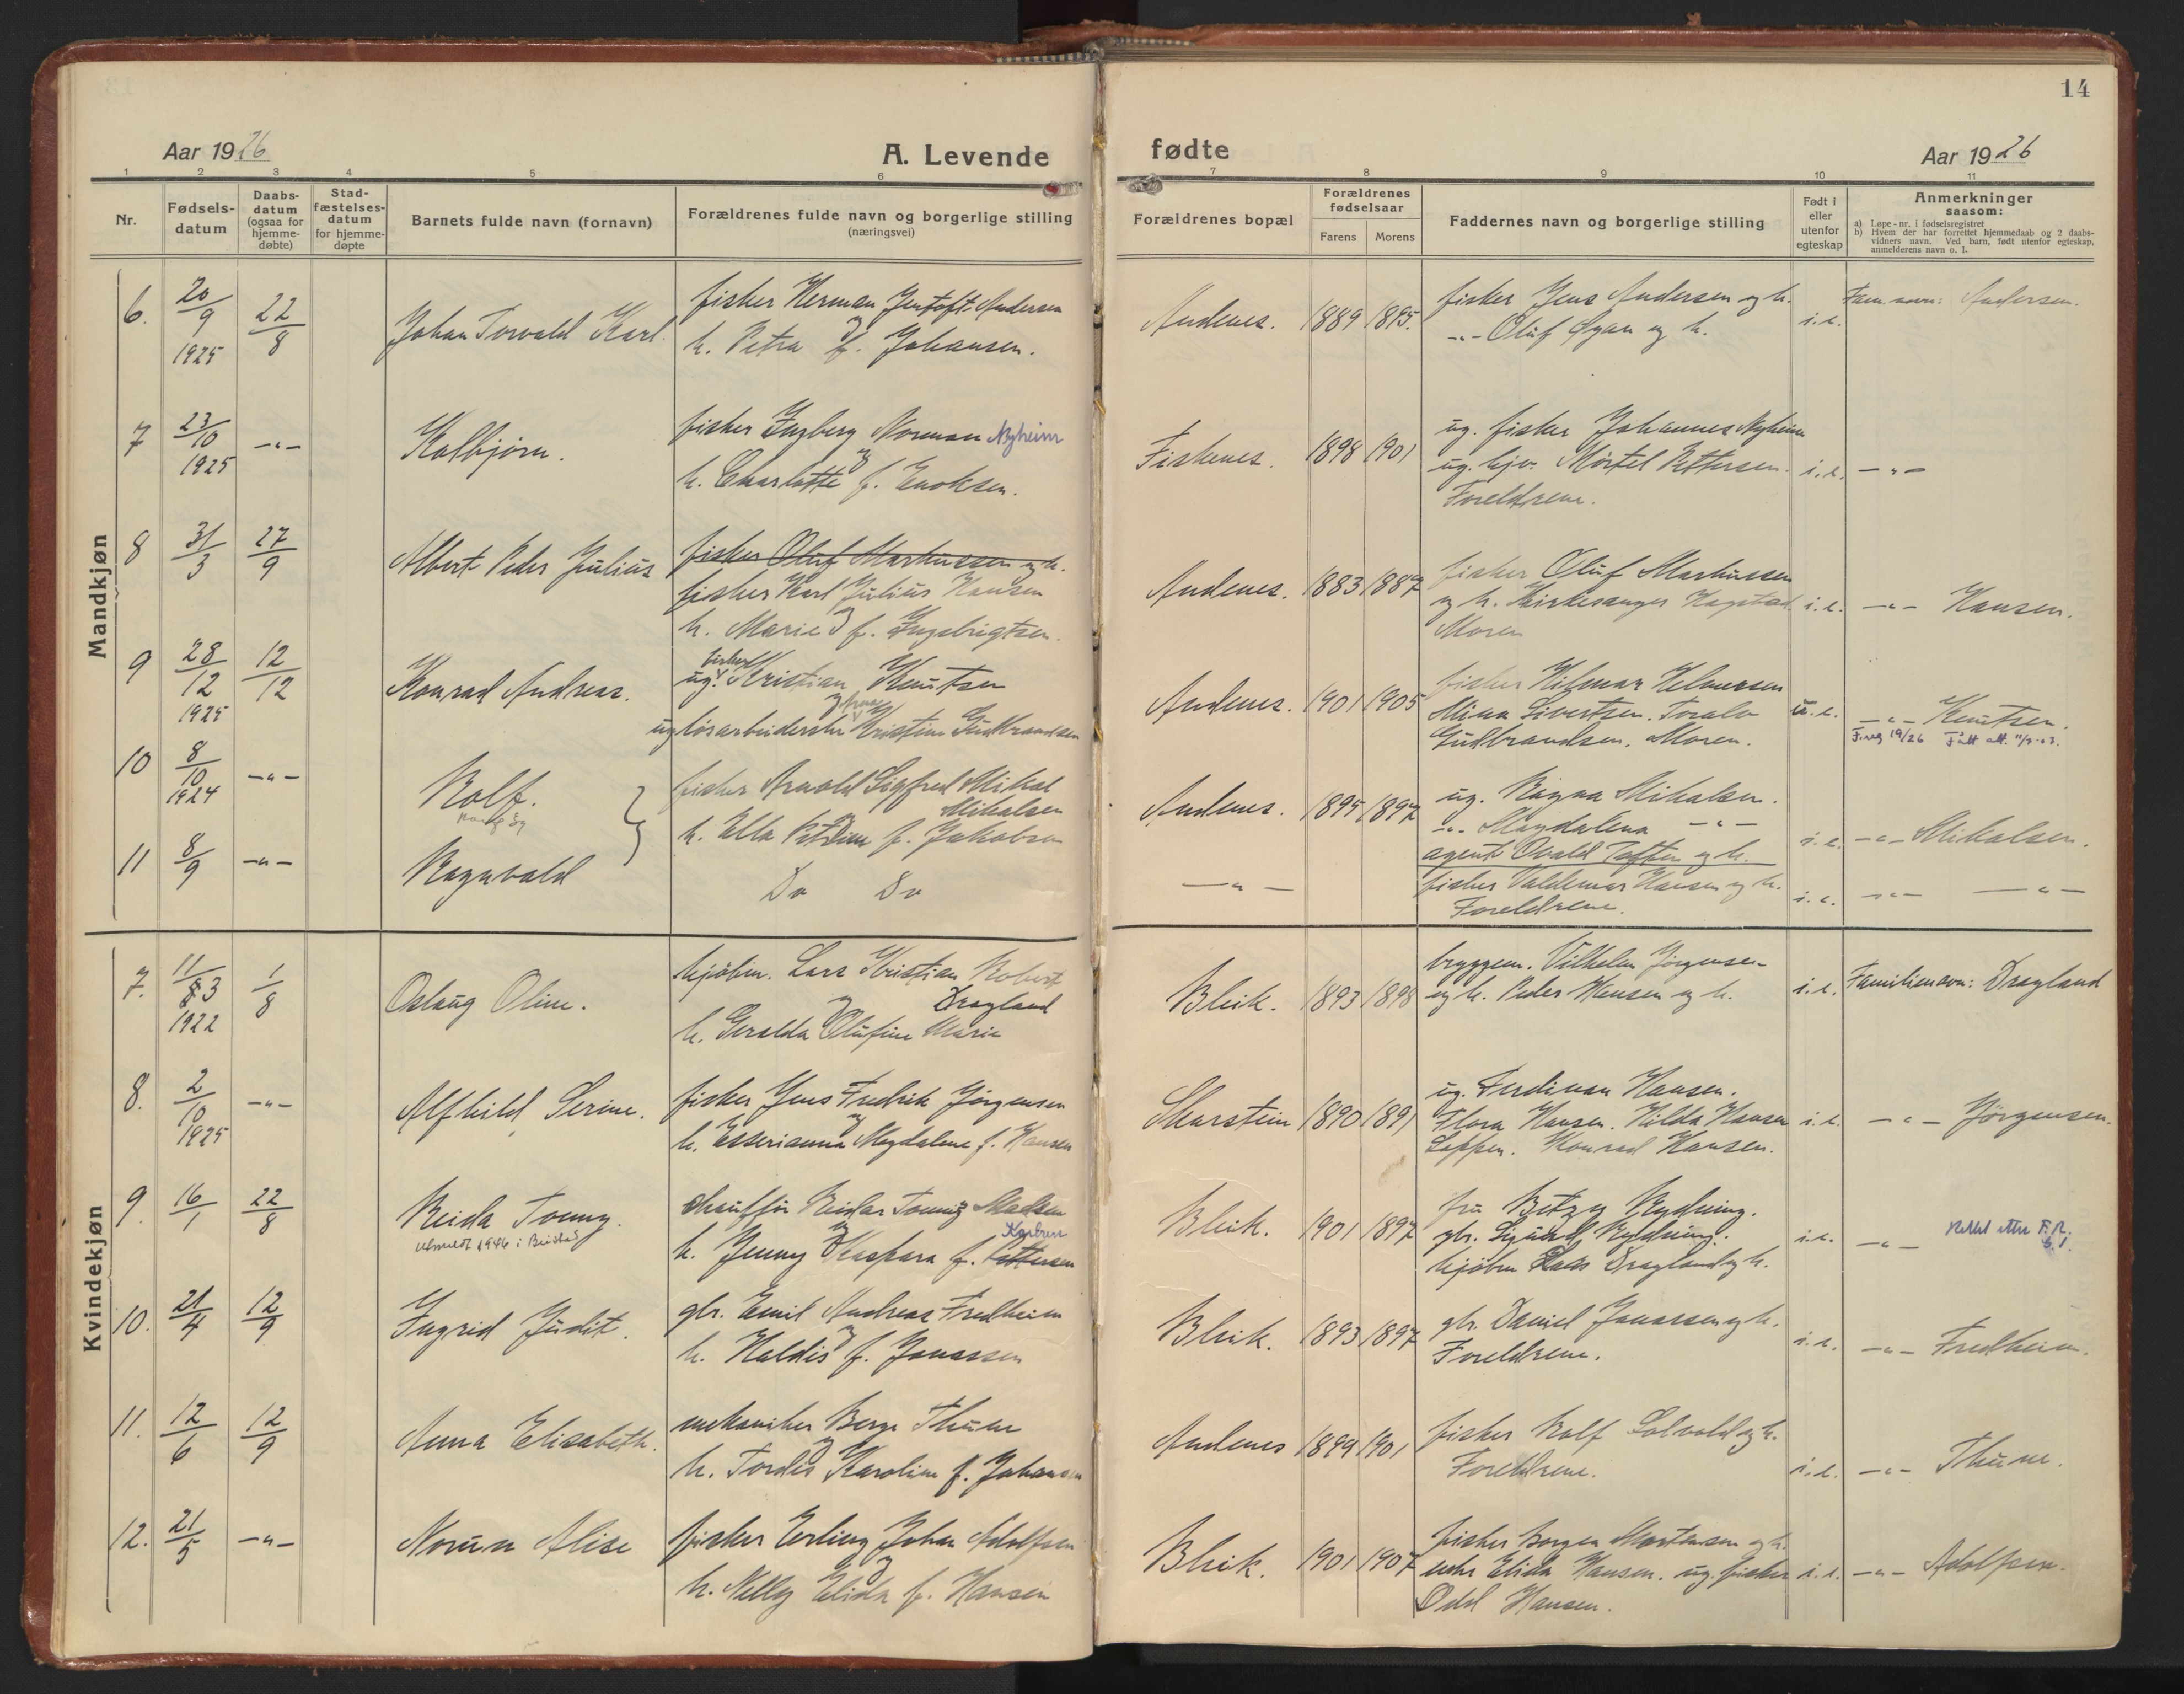 14
Aar 1926
A. Levende
fødte
Aar 1926
1 2 3 4 5 6 7 8 9 10 11
Nr.
Fødsels-
datum
Daabs-
datum
(ogsaa for
hjemme-
døbte)
Stad-
fæstelses-
datum
for hjemme-
døpte
Barnets fulde navn (fornavn)
Forældrenes fulde navn og borgerlige stilling
(næringsvei)
Forældrenes bopæl
Forældrenes
fødselsaar
Farens
Morens
Faddernes navn og borgerlige stilling
Født i
eller
utenfor
egteskap
Anmerkninger
saasom:
a) Løpe-nr. i fødselsregistret
b) Hvem der har forrettet hjemmedaab og 2 daabs-
vidners navn. Ved barn, født utenfor egteskap,
anmelderens navn o. l.
Mandkjøn
6. 20/9 1925 22/8 Johan Torvald Karl.
fisker Herman Jentoft Andersen
og
h. Petra f. Johansen.
Andenes. 1889 1895.
fisker Jens Andersen og h.
-"- Oluf Sgan og h.
i.e. Fam.navn: Andersen.
7 23/10 1925 -"- Kolbjørn.
fisker Ingberg Norman Nyheim
og
h. Charlotte f. Enoksen.
Fiskenes. 1898 1901
ug. fisker Johannes Nyheim
ug. hjv. Mörtel Pettersen.
Foreldrene.
i.e. -"-
8 31/3 27/9 Albert Peder Julius
fisker Oluf Markussen og h.
fisker Karl Julius Hansen
og
h. Marie f. Ingebrigtsen.
Andenes. 1883 1887
fisker Oluf Markussen
og h. Kirkesanger Hagstad
Moren
i.e. -"- Hansen.
9 28/12 1925 12/12 Konrad Andreas.
fisker
ug. Kristian Knutsen
og
ug løsarbeiderske Kristine Gudbrandsen
Andenes. 1901 1905
fisker Hilmar Helmersen
Mina Sivertsen. Toralv
Gudbrandsen. Moren.
u.e. -"- Knutsen.
F.reg 19/26
10 8/10 1924 -"- Rolf.
fisker Arnold Sigfred Mikal
Mikalsen
h. Ella Petrine f. Jakobsen
Andenes. 1895 1897
ug. Ragna Mikalsen.
-"- Magdalena -"-
agent Ovald Toften og h.
i.e. -"- Mikalsen.
11 8/9 -"- Ragnvald
Do Do
-"-
fisker Valdemar Hansen og h.
Foreldrene.
i.e. -"- -"-
Kvindekjøn
7. 11/3 1922 1/8 Oslaug Oline.
kjøbm. Lars Kristian Robert
Dragland
og
h. Geralda Olufine Marie
Bleik. 1893 1898
bryggem. Vilhelm Jørgensen
og h. Peder Hansen og h.
i.e. Familienavn: Dragland
8. 2/10 1925 -"- Alfhild Serine.
fisker Jens Fredrik Jørgensen
og
h. Esserianna Magdalene f. Hansen
Skarstein 1890 1891
ug. Ferdinan Hansen.
Flora Hansen. Hilda Hansen
Loppen. Konrad Hansen.
i.e. -"- Jörgensen.
9. 16/1 22/8 Reida Tonny.
utmeldt 1946 i Beistad
chauffør Reidar Tonning Madsen
og
h. Jenny Kaspara f. Pettersen
Bleik. 1901 1897
fru Betzy Nydning.
gbr. Sigurd Nydning.
kjøbm Lars Dragland og h.
i.e. -"- Rettet etter F.R.
10. 21/4 12/9 Ingrid Judit.
gbr. Emil Andreas Fredheim
og
h. Haldis f. Jonassen
Bleik. 1893 1897
gbr. Daniel Jonassen og h.
Foreldrene.
i.e. -"- Fredheim.
11. 12/6 12/9 Anna Elisabeth.
mekaniker Berge Thune
og
h. Tordis Karoline f. Johansen
Andenes 1899 1901
fisker Rolf Solvold og h.
Foreldrene.
i.e. -"- Thune.
12. 21/5 -"- Norunn Alise
fisker Erling Johan Adolfsen
og
h. Nelly Elida f. Hansen
Bleik. 1901 1907
fisker Borgen Mortensen og h.
enke Elida Hansen. ug. fisker
Odd Hansen.
i.e. -"- Adolfsen.